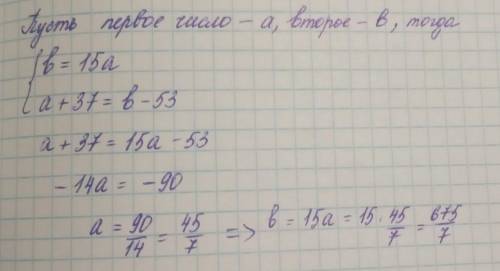 Пусть первое число – а, второе – в, тогда
{ в = 15а
а + 37 = в – 53
а + 37 = 15а – 53
– 14а = – 90
а = 90/14 = 45/7 => в = 15а = 15 · 45/7 = 675/7